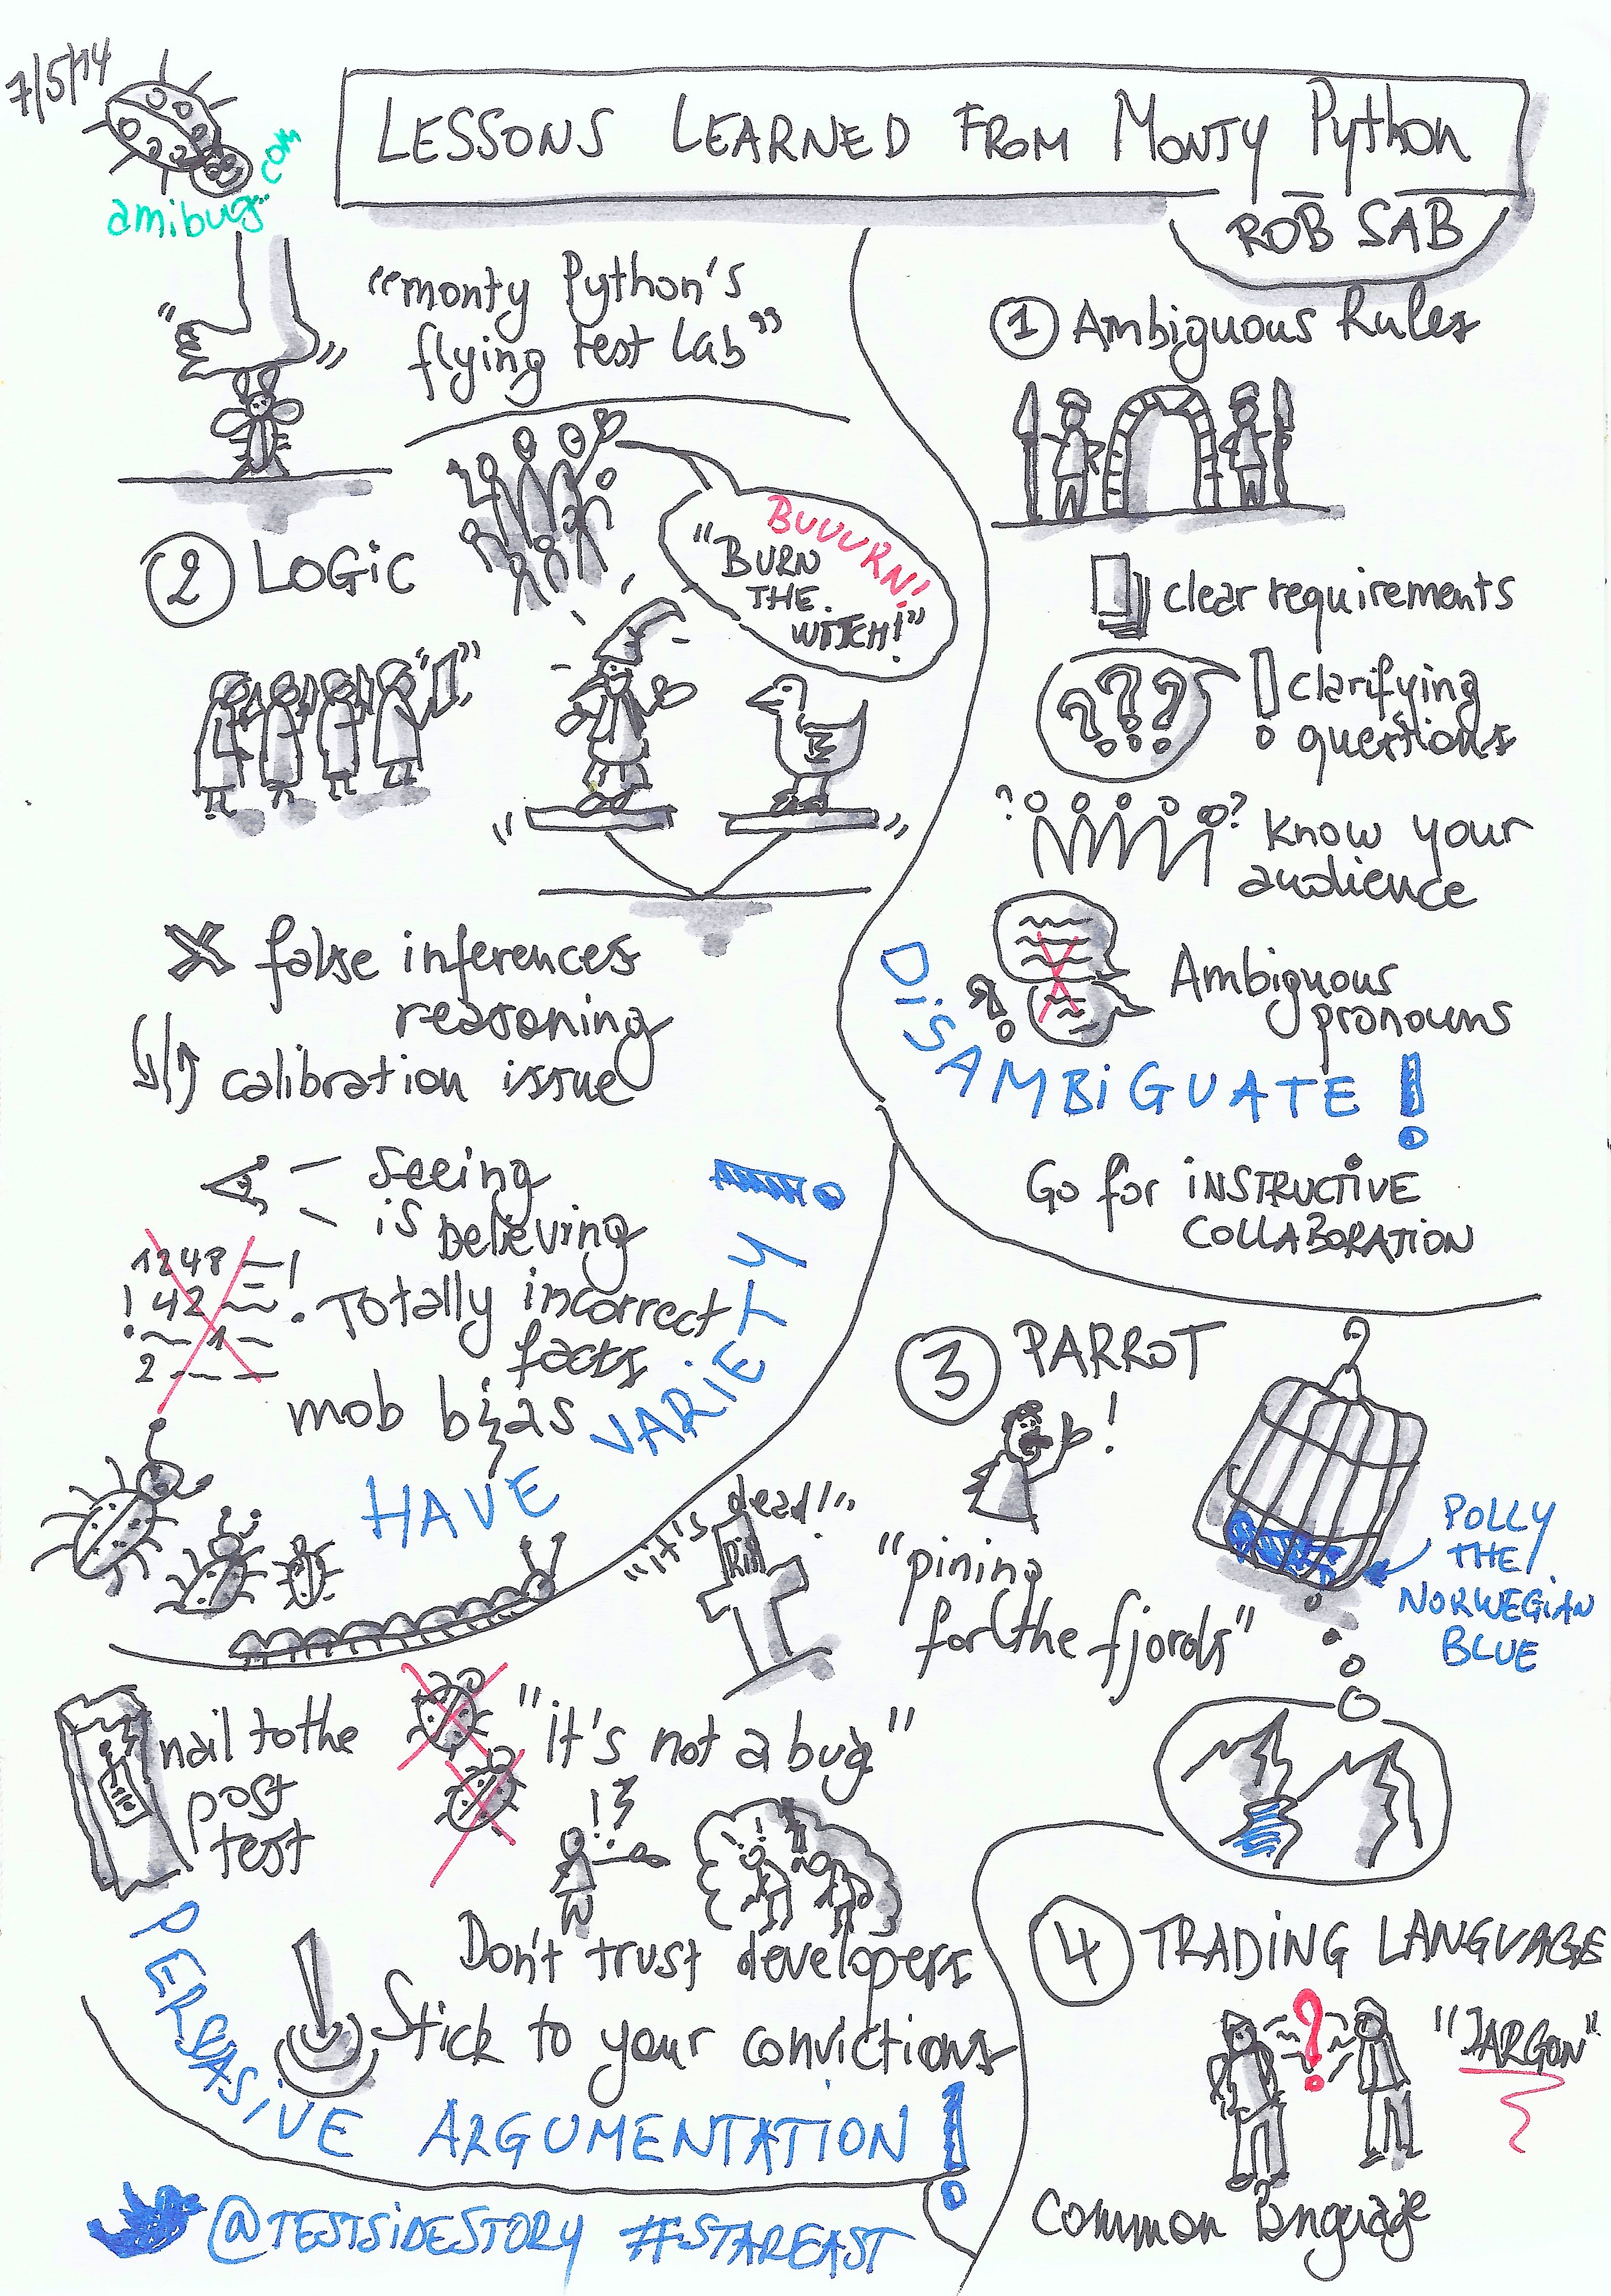 7/5/14
amibug.com
LESSONS LEARNED FROM MONTY Python
ROB SAB
"monty Python's
flying test lab"
1 Ambiguous Rules
clear requirements
???
! clarifying
questions
? ? know your
audience
?
Ambiguous
pronouns
DiSAMBiGUATE!
Go for iNSTRUCTIVE
COLLABORATION
2 LOGiC
BUUURN!
"BURN
THE
WITCH!"
false inferences
reasoning
calibration issue
seeing
is believing
1248 !
! 42 !
1
2
Totally incorrect
facts
mob bias
HAVE VARiETY!
3 PARROT
!
"it's dead!"
RiP
"pining
for the fjords"
POLLY
THE
NORWEGiAN
BLUE
nail to the
post
test
"it's not a bug"
!
Don't trust developers
Stick to your convictions
PERSUASiVE ARGUMENTATiON!
4 TRADiNG LANGUAGE
?
"JARGON"
Common language
@TESTSiDESTORY #STAREAST